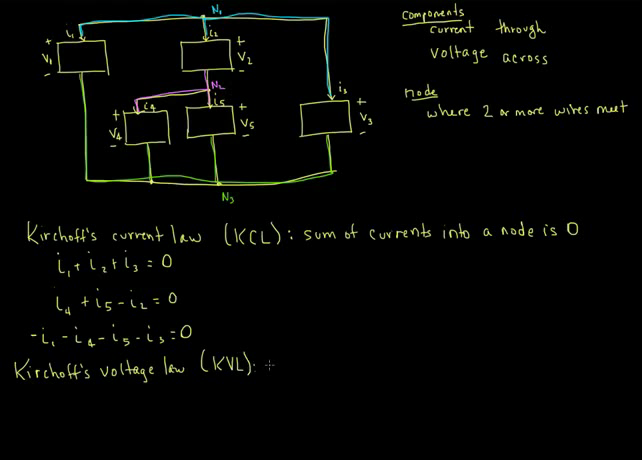 N₁
i₁
i₂
+
V₁
-
+
V₂
-
N₂
i₄
i₅
i₃
+
V₄
-
+
V₅
-
+
V₃
-
N₃
Components
current through
voltage across
node
where 2 or more wires meet
Kirchoff's current law (KCL): sum of currents into a node is 0
i₁ + i₂ + i₃ = 0
i₄ + i₅ - i₂ = 0
-i₁ - i₄ - i₅ - i₃ = 0
Kirchoff's voltage law (KVL):